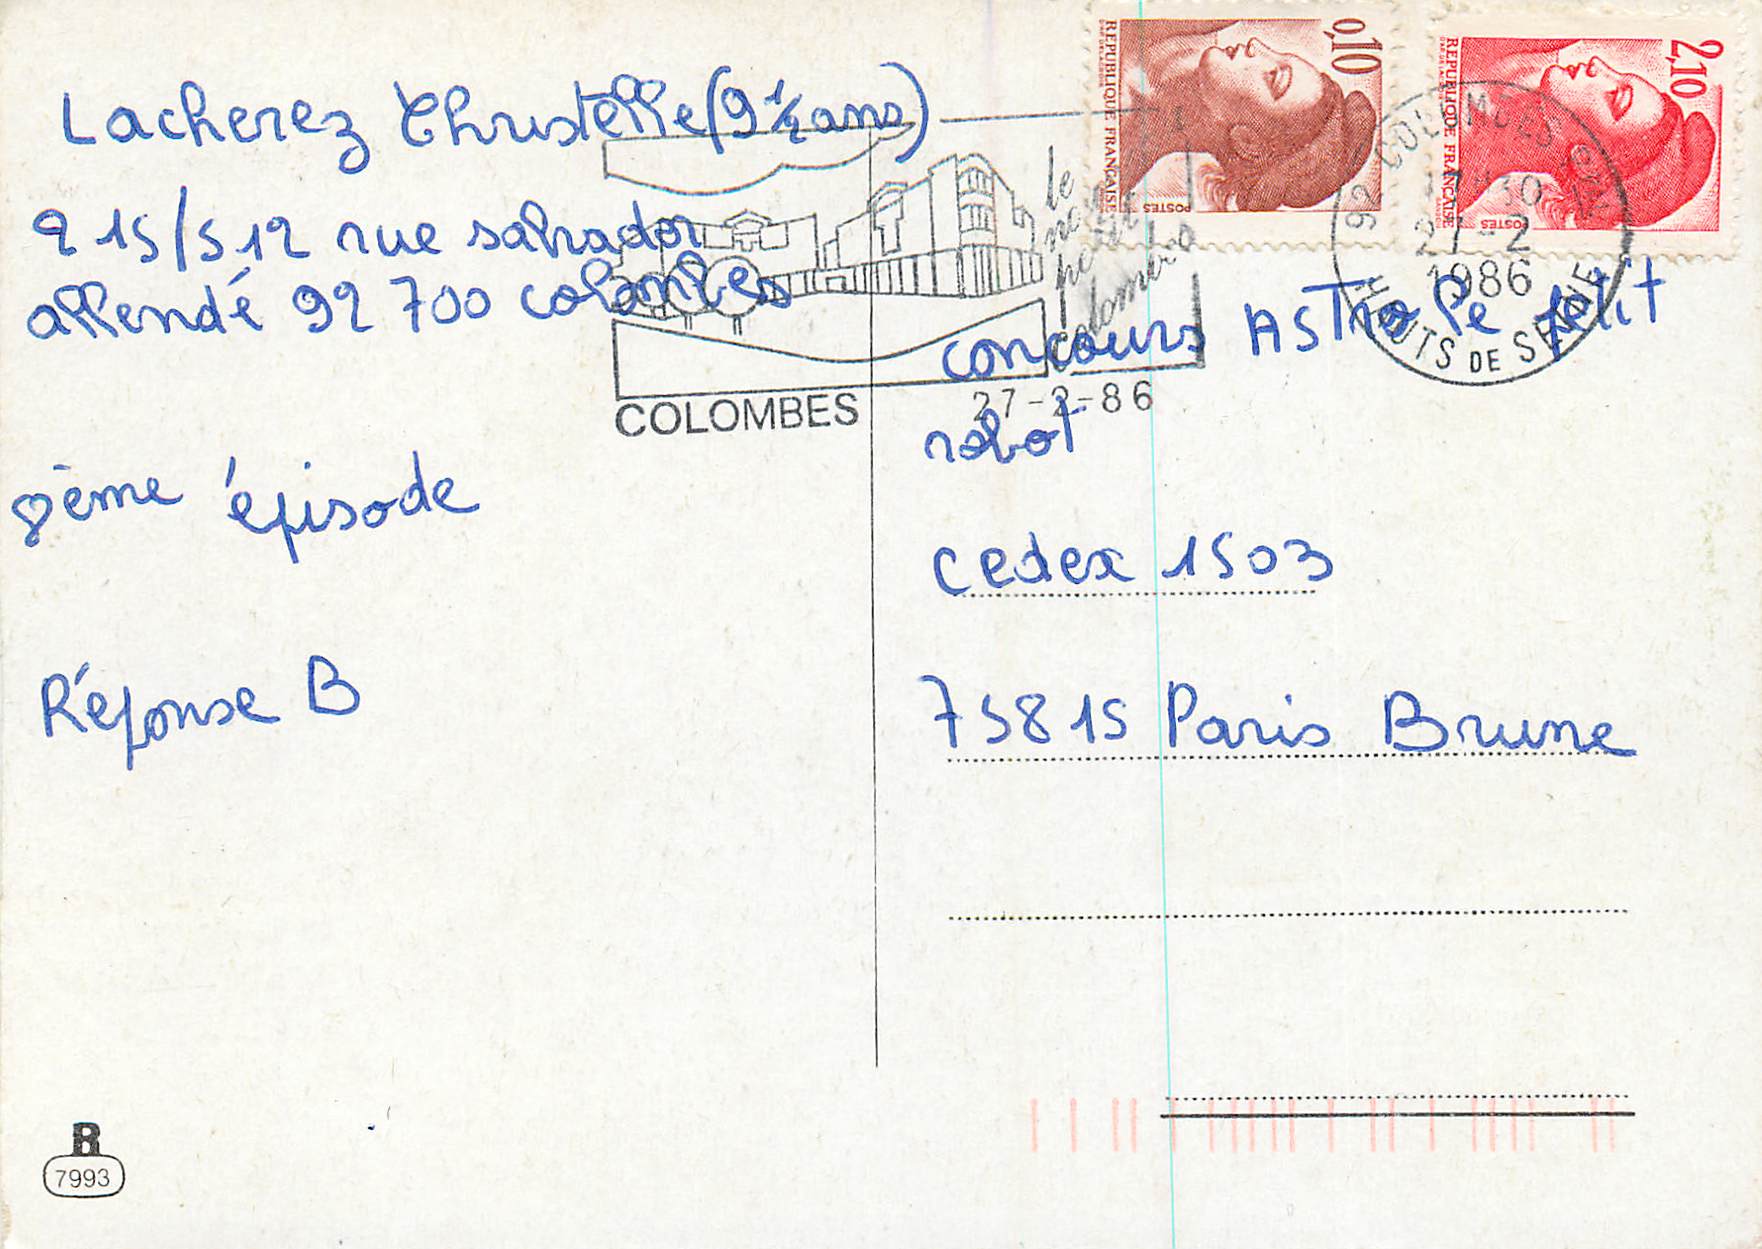 Lacherez Christelle (9 1/2 ans)
215/512 rue salvador
allendé 92 700 colombes
8ème épisode
Réponse B
R
7993
COLOMBES
27-2-86
le
colombes
0,10
REPUBLIQUE FRANÇAISE
POSTES
2,10
REPUBLIQUE FRANÇAISE
POSTES
92 COLOMBES
27-2
1986
HAUTS DE SEINE
concours ASTro le petit
robot
cedex 1503
75815 Paris Brune